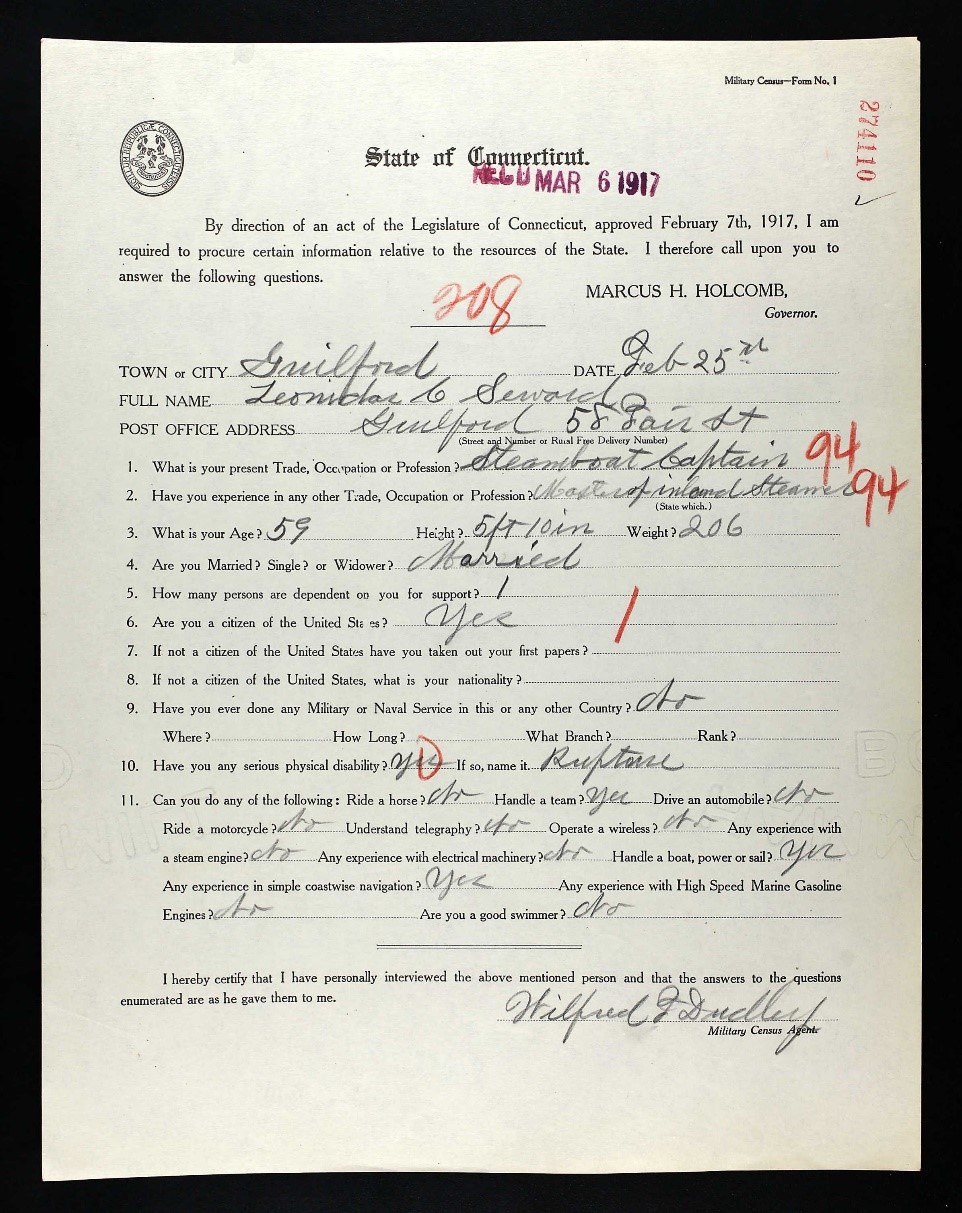 Military Census—Form No. 1
274110
State of Connecticut.
REC'D MAR 6 1917
By direction of an act of the Legislature of Connecticut, approved February 7th, 1917, I am
required to procure certain information relative to the resources of the State. I therefore call upon you to
answer the following questions.
208
MARCUS H. HOLCOMB,
Governor.
TOWN or CITY Guilford DATE Feb 25
FULL NAME Leonidas C Seward
POST OFFICE ADDRESS Guilford 58 Fair St
(Street and Number or Rural Free Delivery Number)
1. What is your present Trade, Occupation or Profession? Steamboat Captain 94
2. Have you experience in any other Trade, Occupation or Profession? Master of inland Steamer 94
(State which.)
3. What is your Age? 59 Height? 5ft 10in Weight? 206
4. Are you Married? Single? or Widower? Married
5. How many persons are dependent on you for support? 1
6. Are you a citizen of the United States? Yes
7. If not a citizen of the United States have you taken out your first papers?
8. If not a citizen of the United States, what is your nationality?
9. Have you ever done any Military or Naval Service in this or any other Country? No
Where? How Long? What Branch? Rank?
10. Have you any serious physical disability? Yes D If so, name it. Rupture
11. Can you do any of the following: Ride a horse? No Handle a team? Yes Drive an automobile? No
Ride a motorcycle? No Understand telegraphy? No Operate a wireless? No Any experience with
a steam engine? No Any experience with electrical machinery? No Handle a boat, power or sail? Yes
Any experience in simple coastwise navigation? Yes Any experience with High Speed Marine Gasoline
Engines? No Are you a good swimmer? No
I hereby certify that I have personally interviewed the above mentioned person and that the answers to the questions
enumerated are as he gave them to me.
Wilfred J Dudley
Military Census Agent.